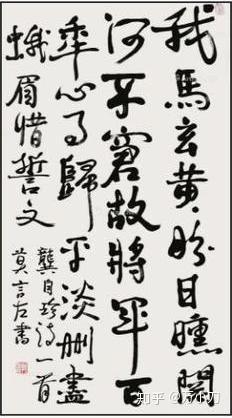 我馬玄黄盼日曛關
河不窘故將軍百
年心事歸平淡刪盡
蛾眉惜誓文
龔自珍詩一首
莫言左書
知乎 @万小刀